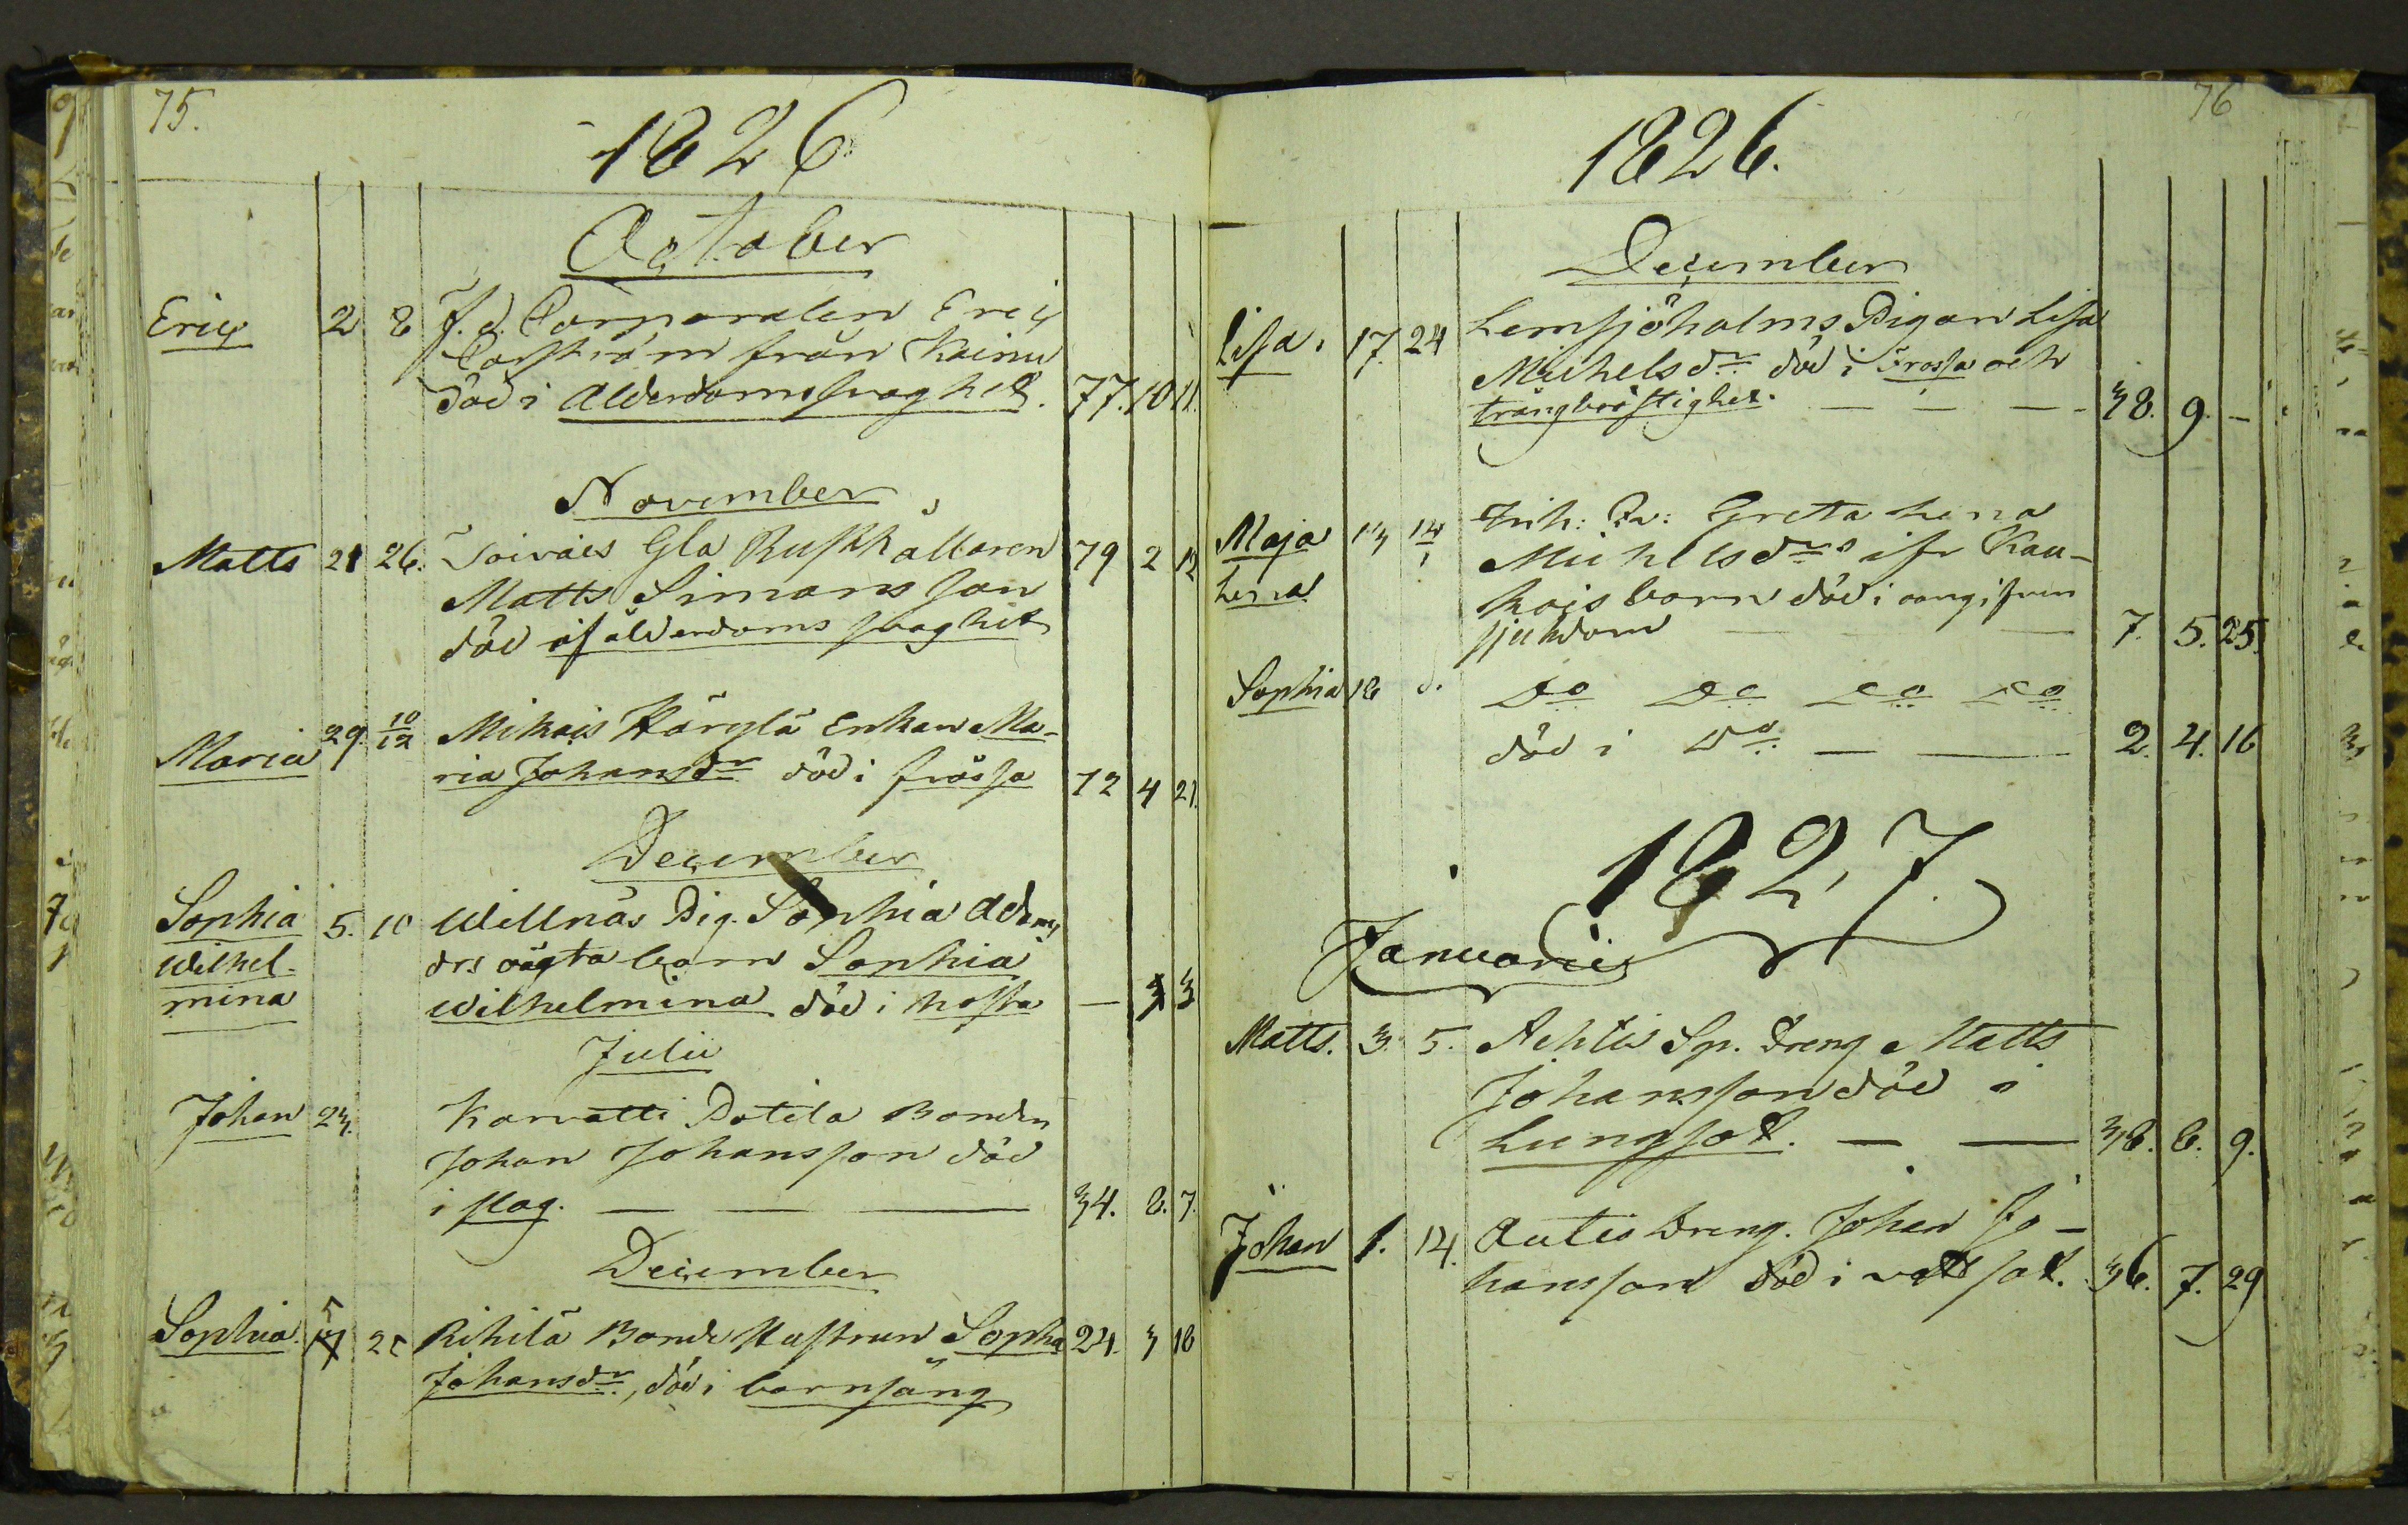 75.
1826
October
Eric 2 8 F. d. Corporalen Eric
från Kainu
död i Ålderdomssvaghet. 77. 10 11.
November
Matts 21 26. Toivais Gla Rusthållaren 79 2 12
Matts Simonsson
död af ålderdoms svaghet
Maria 29. 10/12 Mikois Enkan Ma-
ria Johansdr död i frossa 72 4 21.
December
Sophia 5. 10 Willnäs Pig. Sophia Adams
Wilhel- drs oägta barn Sophia
mina Wilhelmina död i hosta — 3
Julii
Johan 23. Karvatti Potila Bonden
Johan Johansson död
i slag. — — — 34. 8. 7.
December
Sophia 5 25 Rihilä Bonde Hustrun Sopha 24. 3 18
Johansdr, död i barnsäng
76
1826.
December
Lisa. 17. 24 Lemsjöholms Pigan Lisa
Michelsdr död i Frossa och
trångbröstighet. — — — 38. 9. —
Maja 13 14/1 Inh: Greta Lena
Lena Michelsdrs ifr Kau-
kois barn död i oangifven
sjukdom — — 7. 5. 25.
Sophia 18 d. Do Do Do Do
död i Do — — 2. 4. 16
1827.
Januarii
Matts. 3. 5. Ahtis Sp. Dreng Matts
Johansson död i
Lungsot. — — 38. 8. 9.
Johan 1. 14. Autis Dreng. Johan Jo-
hansson död i vattsot. 36. 7. 29